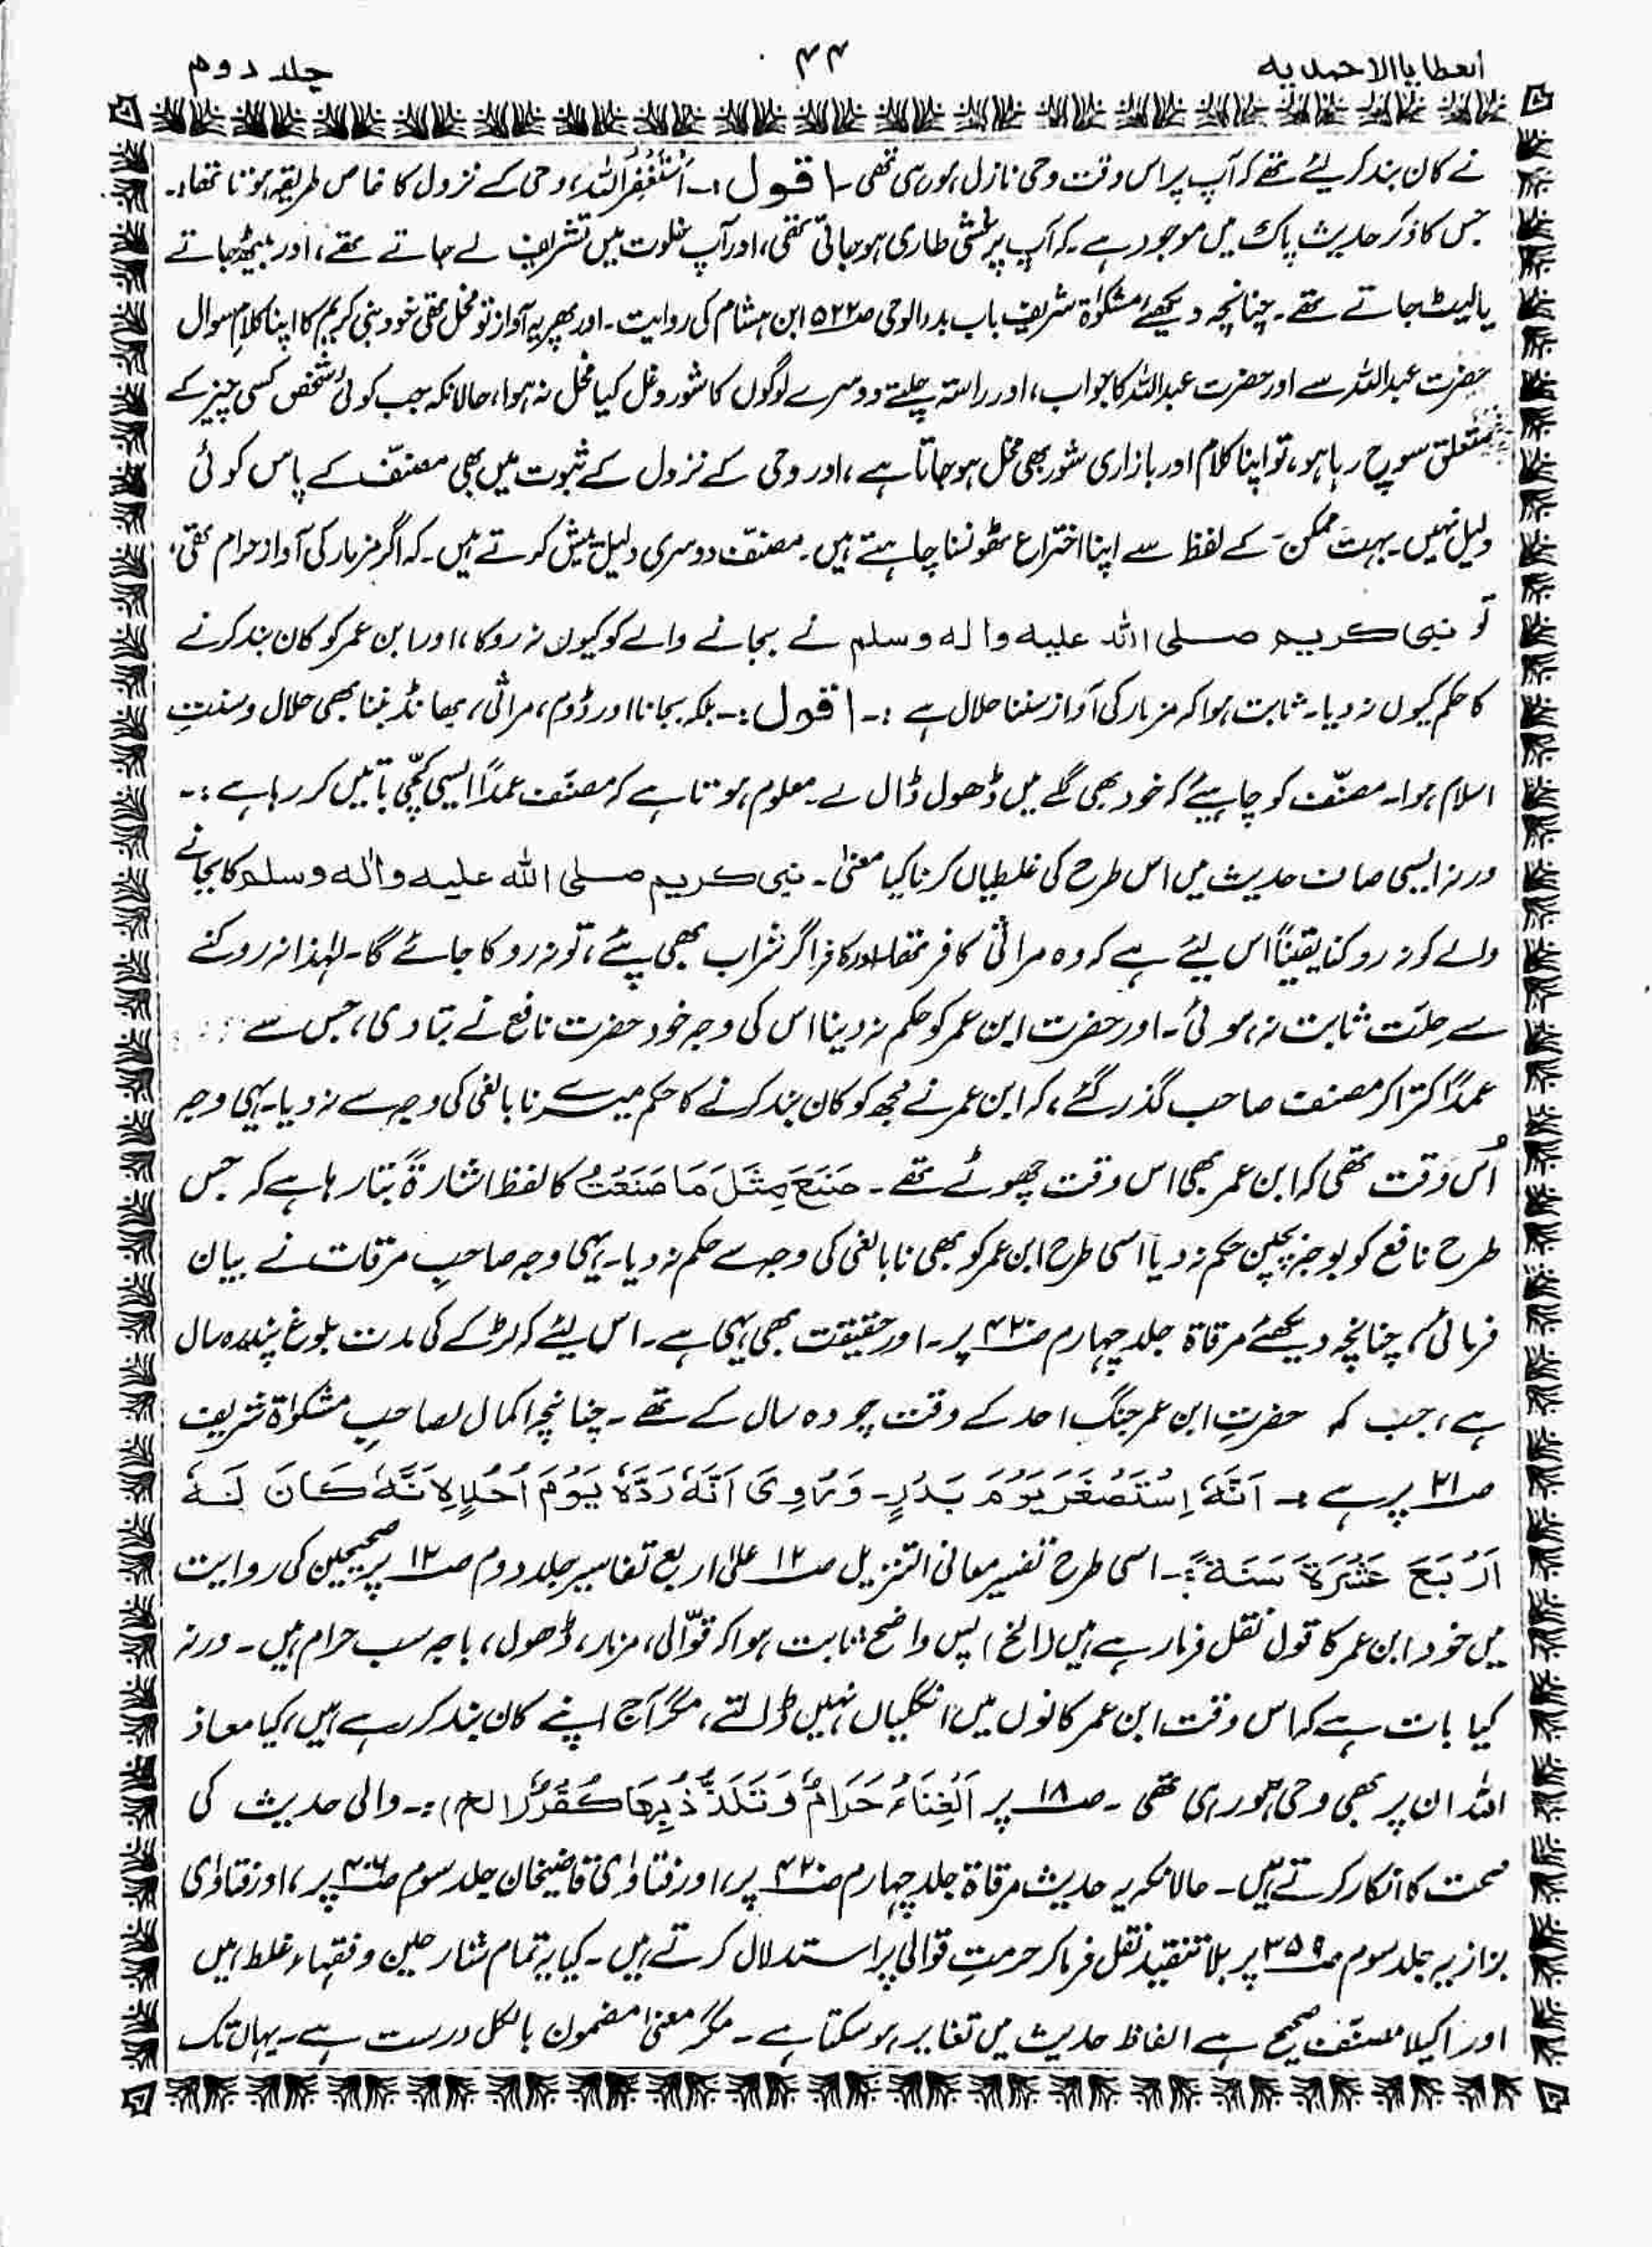 العطایا الاحمدیہ
۴۴
جلد دوم
نے کان بند کر لیئے تھے کہ آپ پر اس وقت وحی نازل ہو رہی تھی۔ اقول:۔ اَسْتَغْفِرُ اللہَ، وحی کے نزول کا خاص طریقہ ہوتا تھا۔
جس کا ذکر حدیث پاک میں موجود ہے۔ کہ آپ پر غشی طاری ہو جاتی تھی، اور آپ خلوت میں تشریف لے جاتے تھے، اور بیٹھ جاتے
یا لیٹ جاتے تھے۔ چنانچہ دیکھئے مشکوٰۃ شریف باب بدر الوحی صـ۵۲۲ـ ابن ہشام کی روایت۔ اور پھر یہ آواز تو مخل تھی خود نبی کریم کا اپنا کلام سوال
حضرت عبداللہ سے اور حضرت عبداللہ کا جواب، اور راستہ چلتے دوسرے لوگوں کا شور و غل کیا مخل نہ ہوا، حالانکہ جب کوئی شخص کسی چیز کے
متعلق سوچ رہا ہو، تو اپنا کلام اور بازاری شور بھی مخل ہو جاتا ہے، اور وحی کے نزول کے ثبوت میں بھی مصنّف کے پاس کوئی
دلیل نہیں۔ بہت ممکن۔ کے لفظ سے اپنا اختراع ٹھونسنا چاہتے ہیں۔ مصنّف دوسری دلیل پیش کرتے ہیں۔ کہ اگر مزمار کی آواز حرام تھی،
تو نبی کریم صلی اللہ علیہ والہ وسلم نے بجانے والے کو کیوں نہ روکا، اور ابن عمر کو کان بند کرنے
کا حکم کیوں نہ دیا۔ ثابت ہوا کہ مزمار کی آواز سننا حلال ہے :۔ اقول :۔ بلکہ بجانا اور ڈوم، مراثی، بھانڈ بننا بھی حلال و سنتِ
اسلام ہوا۔ مصنّف کو چاہیئے کہ خود بھی گلے میں ڈھول ڈال لے۔ معلوم ہوتا ہے کہ مصنّف عمداً ایسی کچّی باتیں کر رہا ہے :۔
ورنہ ایسی صاف حدیث میں اس طرح کی غلطیاں کرنا کیا معنیٰ۔ نبی کریم صلی اللہ علیہ والہ وسلم کا بجانے
والے کو نہ روکنا یقیناً اس لیئے ہے کہ وہ مراثی کافر تھا۔ اور کافر اگر شراب بھی پئے، تو نہ روکا جائے گا۔ لہٰذا نہ روکنے
سے حِلّت ثابت نہ ہوئی۔ اور حضرت ابن عمر کو حکم نہ دینا اس کی وجہ خود حضرت نافع نے بتا دی، جس سے
عمداً کترا کر مصنف صاحب گذر گئے، کہ ابن عمر نے مجھ کو کان بند کرنے کا حکم میرے نابالغی کی وجہ سے نہ دیا۔ یہی وجہ
اُس وقت تھی کہ ابن عمر بھی اس وقت چھوٹے تھے۔ صَنَعَ مِثْلَ مَا صَنَعْتُ کا لفظ اشارۃً بتا رہا ہے کہ جس
طرح نافع کو بوجہ بچپن حکم نہ دیا اسی طرح ابن عمر کو بھی نابالغی کی وجہ سے حکم نہ دیا۔ یہی وجہ صاحبِ مرقات نے بیان
فرمائی، چنانچہ دیکھئے مرقاۃ جلد چہارم صـ۴۲۰ـ پر۔ اور حقیقت بھی یہی ہے۔ اس لیئے کہ لڑکے کی مدت بلوغ پندرہ سال
ہے، جب کہ حضرتِ ابن عمر جنگ احد کے وقت چودہ سال کے تھے۔ چنانچہ اکمال لصاحبِ مشکوٰۃ شریف
صـ۲۱ـ پر ہے :۔ اَنَّہٗ اِسْتَصْغَرَ یَوْمَ بَدْرٍ۔ وَرُوِیَ اَنَّہٗ رَدَّہٗ یَوْمَ اُحُدٍ لِاَنَّہٗ کَانَ لَہٗ
اَرْبَعَ عَشْرَۃَ سَنَۃً :۔ اسی طرح تفسیر معانی التنزیل صـ۱۲ـ علیٰ اربع تفاسیر جلد دوم صـ۱۲ـ پر صحیحین کی روایت
میں خود ابن عمر کا قول نقل فرما رہے ہیں (الخ) پس واضح ثابت ہوا کہ قوّالی، مزمار، ڈھول، باجہ سب حرام ہیں۔ ورنہ
کیا بات ہے کہ اس وقت ابن عمر کانوں میں انگلیاں نہیں ڈالتے، مگر آج اپنے کان بند کر رہے ہیں، کیا معاذ
اللہ ان پر بھی وحی ہو رہی تھی۔ صـ۱۸ـ پر اَلْغِنَاءُ حَرَامٌ وَ تَلَذُّذُ بِہَا کُفْرٌ (الخ) :۔ والی حدیث کی
صحت کا انکار کرتے ہیں۔ حالانکہ یہ حدیث مرقاۃ جلد چہارم صـ۴۲۰ـ پر، اور فتاوٰی قاضیخان جلد سوم صـ۴۰۶ـ پر، اور فتاوٰی
بزازیہ جلد سوم صـ۳۵۹ـ پر بلا تنقید نقل فرما کر حرمتِ قوالی پر استدلال کرتے ہیں۔ کیا یہ تمام شارحین و فقہاء غلط ہیں
اور اکیلا مصنّف صحیح ہے الفاظ حدیث میں تغایر ہو سکتا ہے۔ مگر معنیٰ مضمون بالکل درست ہے۔ یہاں تک